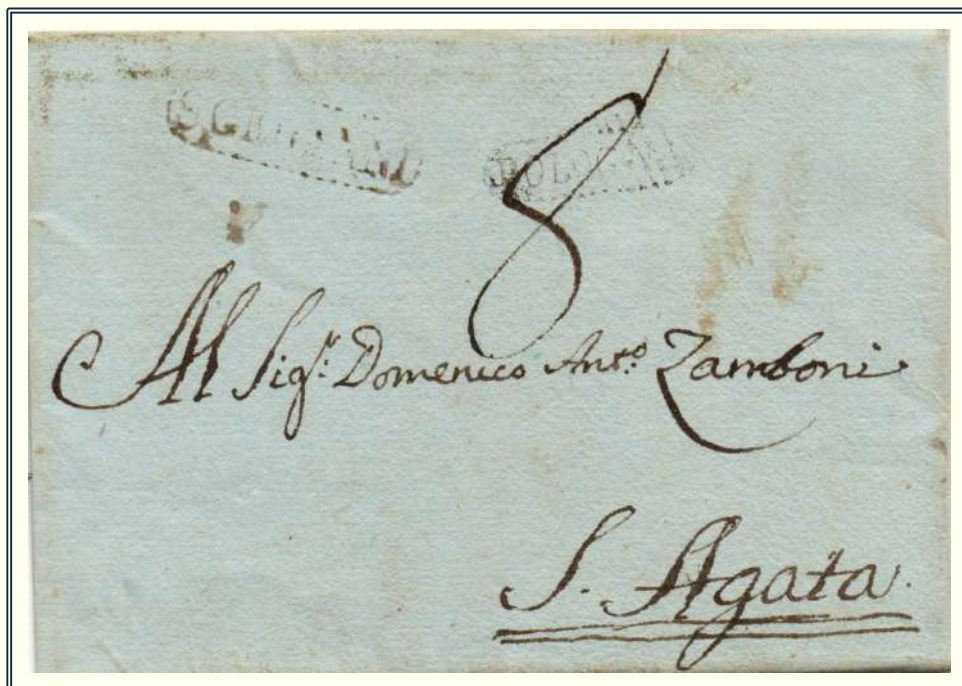 BOLOGNA
8
Al Sigr. Domenico Anto. Zamboni
S. Agata.